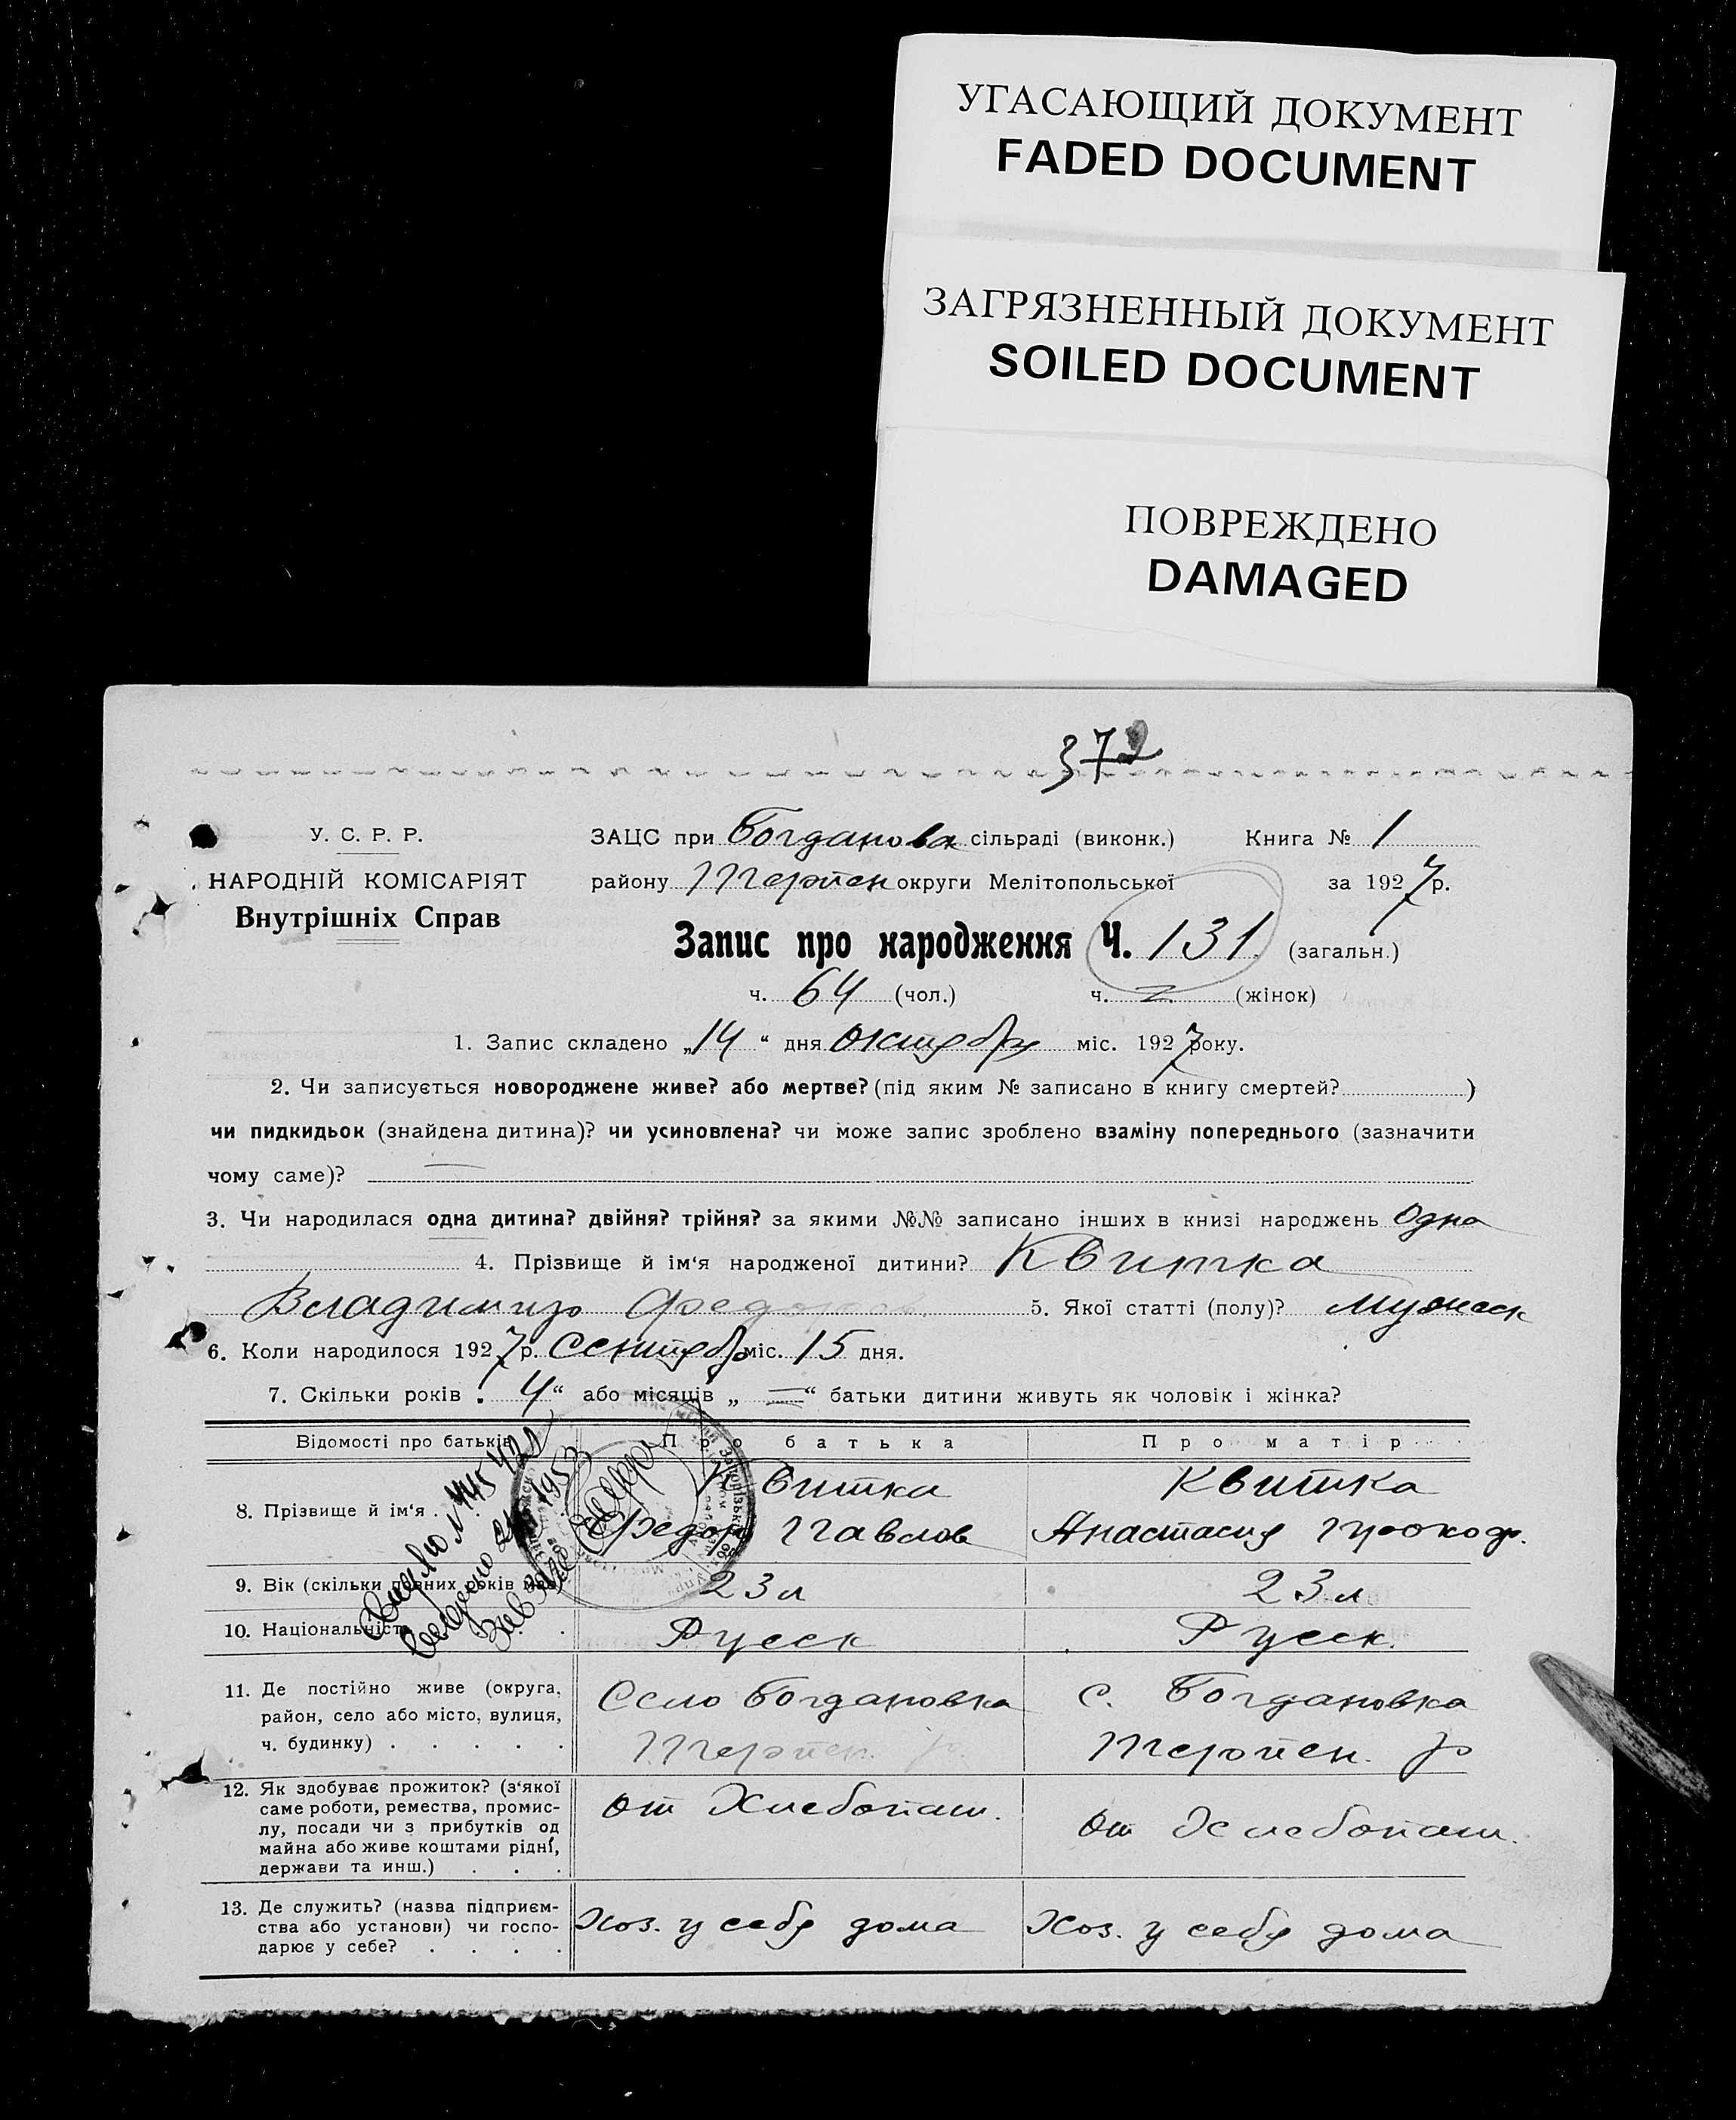 УГАСАЮЩИЙ ДОКУМЕНТ
FADED DOCUMENT
ЗАГРЯЗНЕННЫЙ ДОКУМЕНТ
SOILED DOCUMENT
ПОВРЕЖДЕНО
DAMAGED
372
У. С. Р. Р.
НАРОДНІЙ КОМІСАРІЯТ
Внутрішніх Справ
ЗАЦС при Богданова сільраді (виконк.) Книга № 1
району Терпен округи Мелітопольської за 1927 р.
Запис про народження Ч. 131 (загальн.)
ч. 64 (чол.) ч. (жінок)
1. Запис складено „14“ дня Октября міс. 1927 року.
2. Чи записується новороджене живе? або мертве? (під яким № записано в книгу смертей? )
чи пидкидьок (знайдена дитина)? чи усиновлена? чи може запис зроблено взаміну попереднього (зазначити
чому саме)?
3. Чи народилася одна дитина? двійня? трійня? за якими №№ записано інших в книзі народжень одна
4. Прізвище й ім'я народженої дитини? Квитка
Владимир Федоров 5. Якої статті (полу)? Мужеск
6. Коли народилося 1927 р. Сентябр міс. 15 дня.
7. Скільки років „4“ або місяців „—“ батьки дитини живуть як чоловік і жінка?
Відомості про батьків Про батька Про матір
8. Прізвище й ім'я . Квитка Квитка
Федор Павлов Анастасия Прокоф.
9. Вік (скільки повних років має) 23 л 23 л
10. Національність Русск Русск.
11. Де постійно живе (округа, район, село або місто, вулиця, ч. будинку) . . . . . Село Богдановка с. Богдановка
Терпен. р. Терпен. р
12. Як здобуває прожиток? (з'якої саме роботи, ремества, промислу, посади чи з прибутків од майна або живе коштами рідні, держави та инш.) . . . от Хлебопаш. от Хлебопаш.
13. Де служить? (назва підприємства або установи) чи господарює у себе? . . . . Хоз. у себя дома Хоз. у себя дома